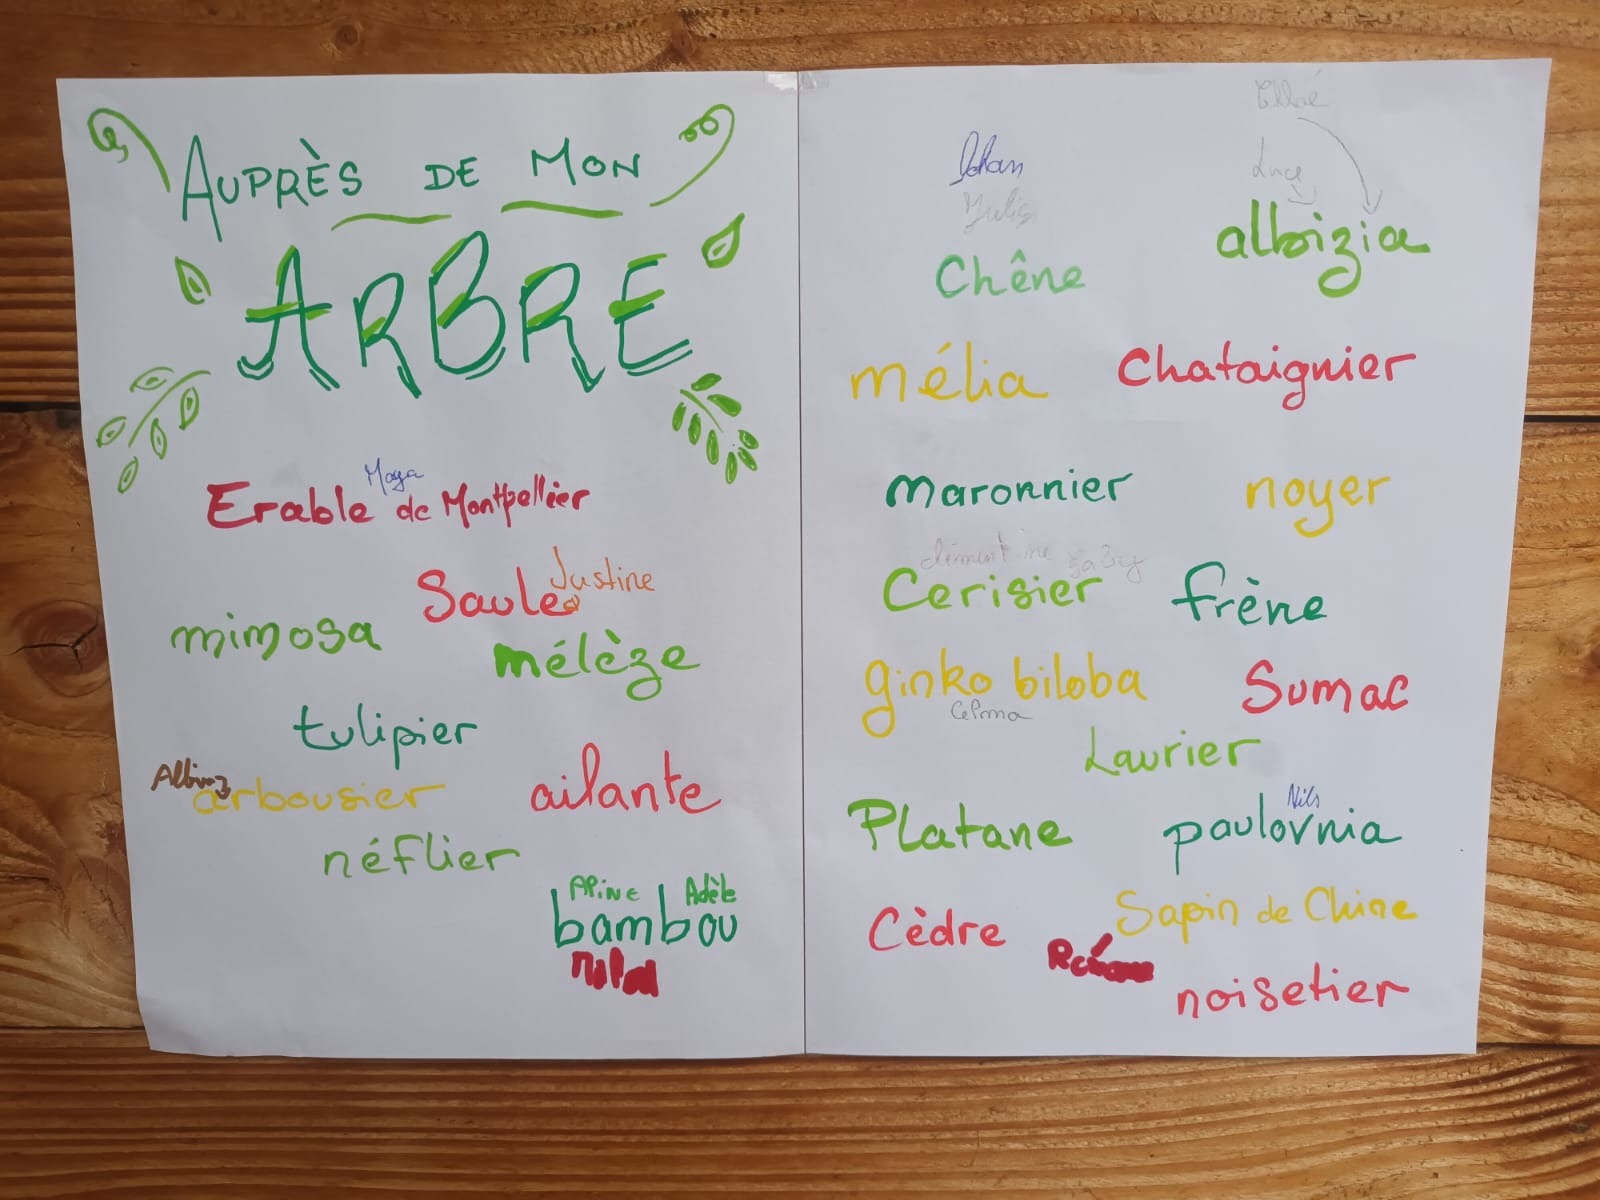 AUPRÈS DE MON
ARBRE
Maya
Erable de Montpellier
Justine
Saule
mimosa
mélèze
tulipier
ailante
arbousier
néflier
Adèle
bambou
Chloé
Luce
albizia
Chêne
mélia
Chataignier
maronnier
noyer
clémentine gaby
Cerisier
frène
ginko biloba
Sumac
Laurier
Nils
Platane
paulovnia
Sapin de Chine
Cèdre
noisetier